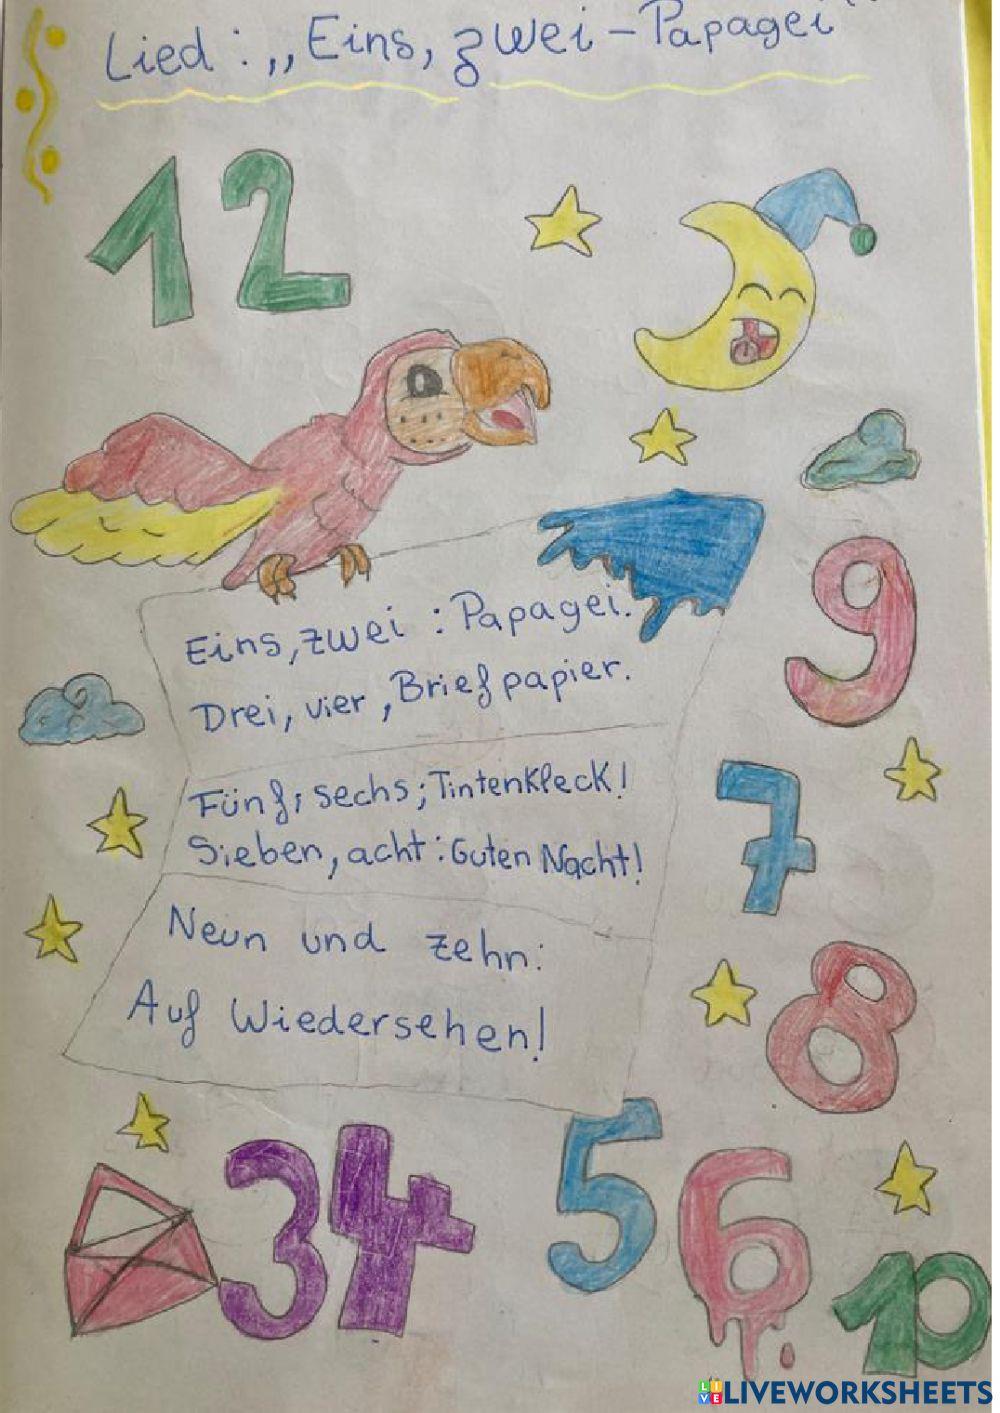 Lied: „Eins, zwei - Papagei"
1 2
Eins, zwei : Papagei.
Drei, vier, Briefpapier.
Fünf, sechs; Tintenkleck!
Sieben, acht: Guten Nacht!
Neun und zehn:
Auf Wiedersehen!
9
7
8
3 4
5 6
10
LIVEWORKSHEETS